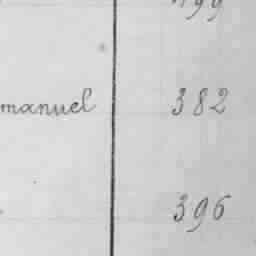 manuel 382
396